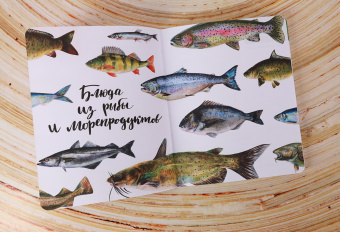 Блюда
из рыбы
и морепродуктов